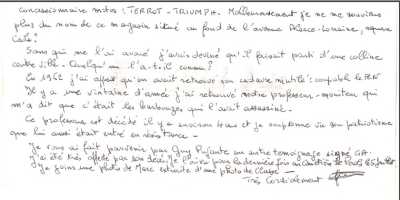 concessionnaire motos : TERROT - TRIUMPH. Malheureusement je ne me souviens
plus du nom de ce magasin situé au fond de l'avenue Alsace-Lorraine, square
Cayla ?
Sans qui me l'ai avoué j'avais deviné qu'il faisait parti d'une colline
contre . Quelqu'un l'a-t-il connu ?
En 1962 j'ai appris qu'on avait retrouvé son cadavre mutilé : coupable le FLN
Il y a une vintaine d'année j'ai retrouvé notre professeur - moniteur qui
m'a dit que c'était les barbouzes qui l'avait assassiné.
Ce professeur est décédé il y a environ 4 ans et je soupçonne vu son patriotisme
que lui aussi était entré en résistance -
Je vous ai fait parvenir par Guy Pujante un autre témoignage signé GA.
J'ai été très affecté par son décès, je l'avais vu la dernière fois au
Je joins une photo de Marc extraite d'une photo de classe -
Très Cordialement